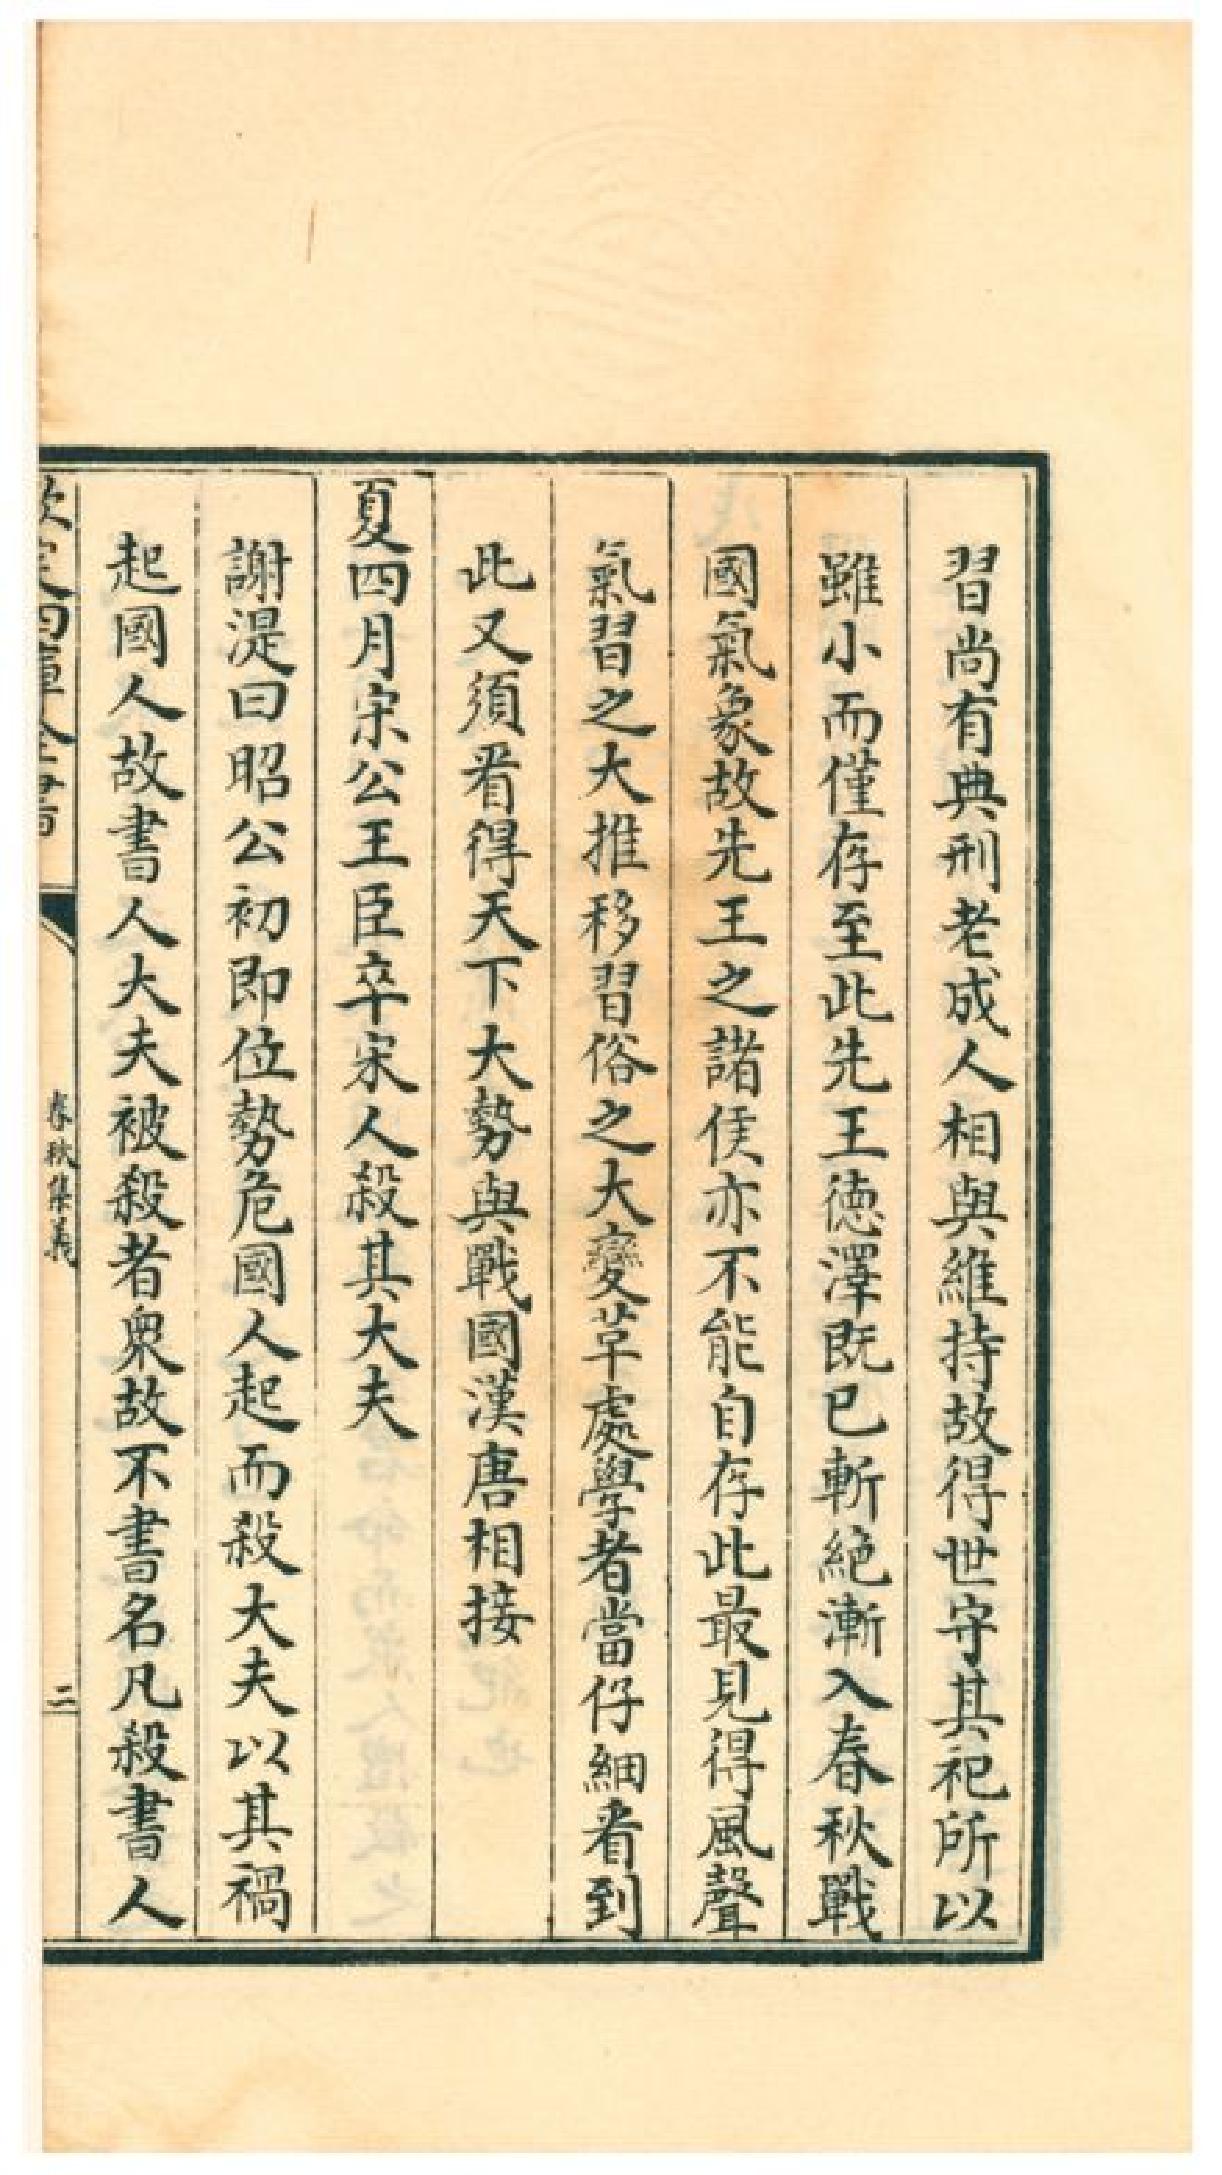 習尚有典刑老成人相與維持故得世守其祀所以
雖小而僅存至此先王徳澤既已斬絶漸入春秋戰
國氣象故先王之諸侯亦不能自存此最見得風聲
氣習之大推移習俗之大變革處學者當仔細看到
此又須看得天下大勢與戰國漢唐相接
夏四月宋公王臣卒宋人殺其大夫
謝湜曰昭公初即位勢危國人起而殺大夫以其禍
起國人故書人大夫被殺者衆故不書名凡殺書人
欽定四庫全書
春秋集義
二